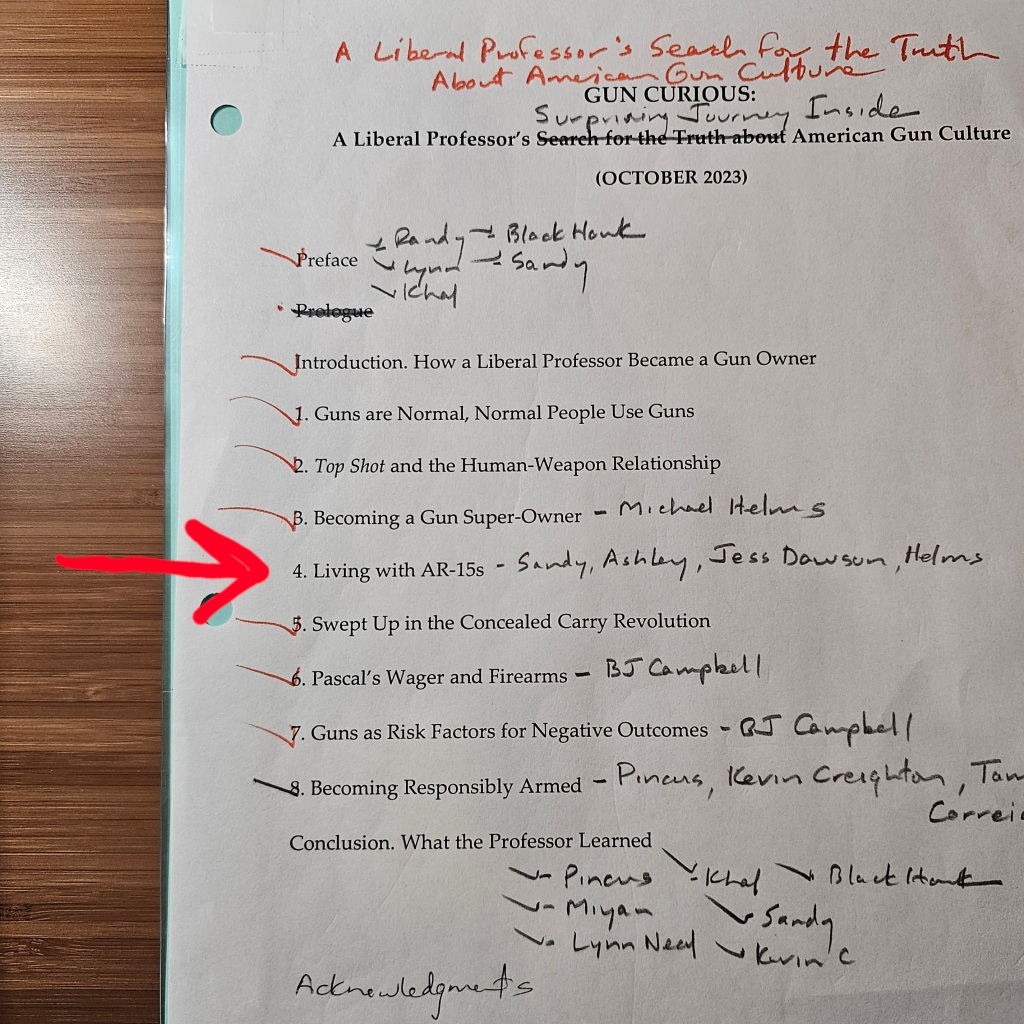 A Liberal Professor's Search for the Truth
About American Gun Culture
GUN CURIOUS:
Surprising Journey Inside
A Liberal Professor's Search for the Truth about American Gun Culture
(OCTOBER 2023)
Randy Black Hawk
Preface
Lynn Sandy
Khal
Prologue
Introduction. How a Liberal Professor Became a Gun Owner
1. Guns are Normal, Normal People Use Guns
2. Top Shot and the Human-Weapon Relationship
3. Becoming a Gun Super-Owner - Michael Helms
4. Living with AR-15s - Sandy, Ashley, Jess Dawson, Helms
5. Swept Up in the Concealed Carry Revolution
6. Pascal's Wager and Firearms - BJ Campbell
7. Guns as Risk Factors for Negative Outcomes - BJ Campbell
8. Becoming Responsibly Armed - Pincus, Kevin Creighton, Tam
Correi
Conclusion. What the Professor Learned
Pincus Khal Black Hawk
Miyam Sandy
Lynn Neal Kevin C
Acknowledgments